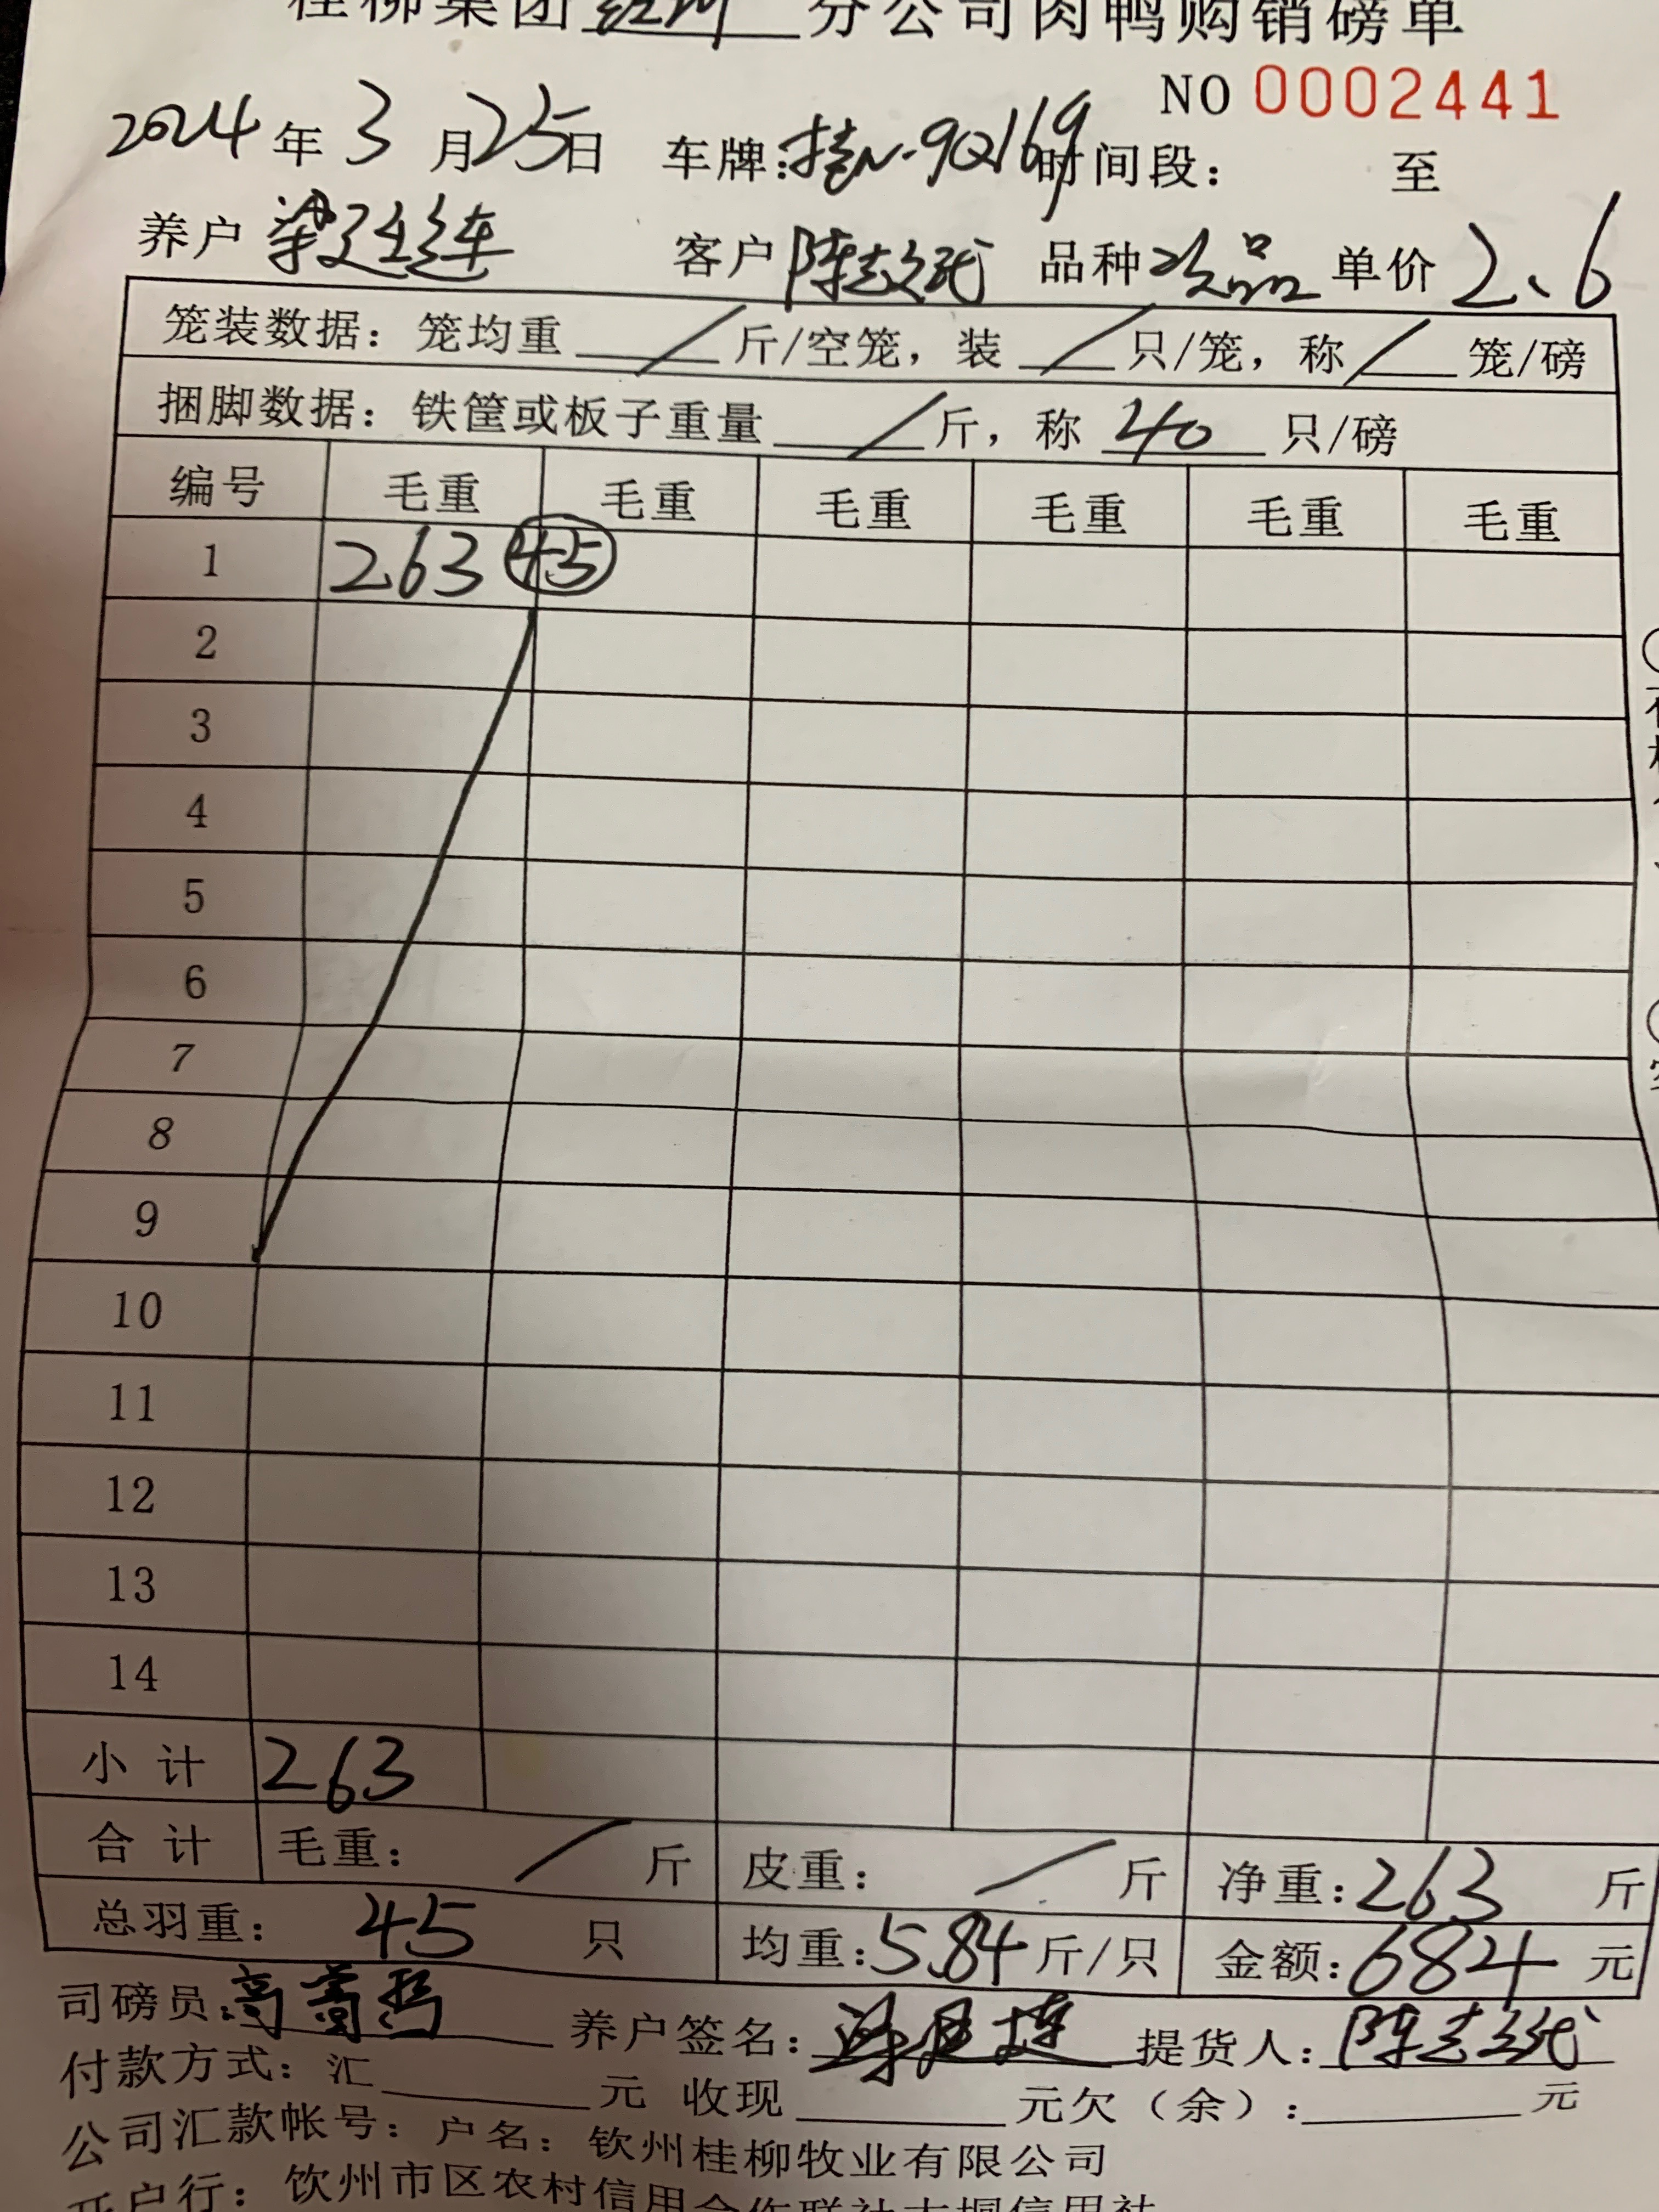 桂柳集团 分公司肉鸭购销磅单
NO 0002441
2024年3月25日 车牌:桂N-9Q169 时间段: 至
养户 梁 连 客户 陈志 品种 次品 单价 2、6
笼装数据: 笼均重 / 斤/空笼, 装 / 只/笼, 称 / 笼/磅
捆脚数据: 铁筐或板子重量 / 斤, 称 40 只/磅
编号 毛重 毛重 毛重 毛重 毛重 毛重
1 263 45
2
3
4
5
6
7
8
9
10
11
12
13
14
小计 263
合计 毛重: / 斤 皮重: / 斤 净重: 263 斤
总羽重: 45 只 均重: 5.84 斤/只 金额: 684 元
司磅员: 高 养户签名: 提货人: 陈志
付款方式: 汇 元 收现 元欠(余): 元
公司汇款帐号: 户名: 钦州桂柳牧业有限公司
开户行: 饮州市区农村信用合作联社大垌信用社